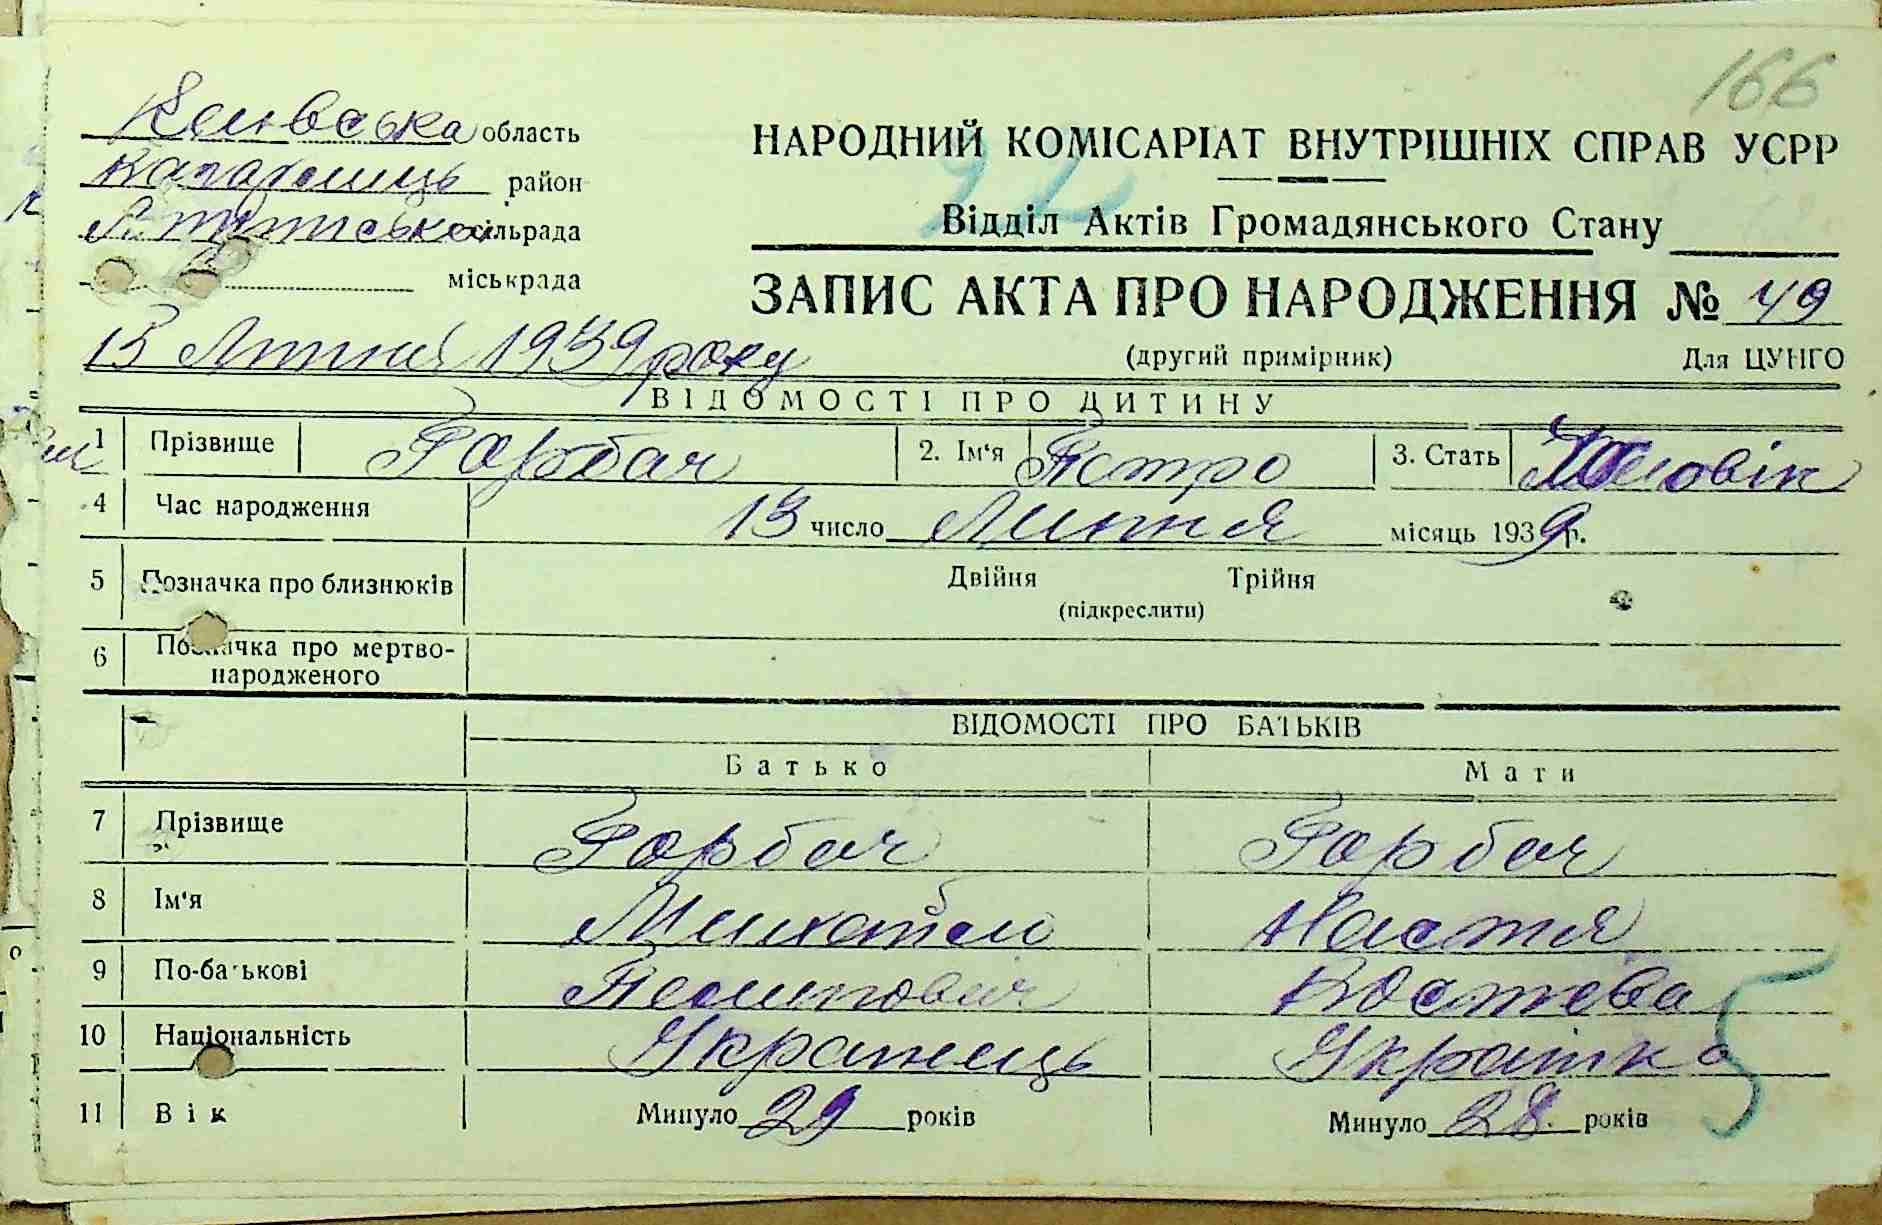 166
Київська область
НАРОДНИЙ КОМІСАРІАТ ВНУТРІШНІХ СПРАВ УСРР
район
Відділ Актів Громадянського Стану
сільрада
міськрада
ЗАПИС АКТА ПРО НАРОДЖЕННЯ № 49
13 Липня 1939 року
(другий примірник) Для ЦУНГО
ВІДОМОСТІ ПРО ДИТИНУ
1 Прізвище Горбач 2. Ім'я Петро 3. Стать Чоловік
4 Час народження 13 число Липня місяць 1939 р.
5 Позначка про близнюків Двійня Трійня
(підкреслити)
6 Позначка про мертво-
народженого
ВІДОМОСТІ ПРО БАТЬКІВ
Батько Мати
7 Прізвище Горбач Горбач
8 Ім'я Михайло Настя
9 По-батькові
10 Національність Українець Українка
5
11 Вік Минуло 29 років Минуло 28 років